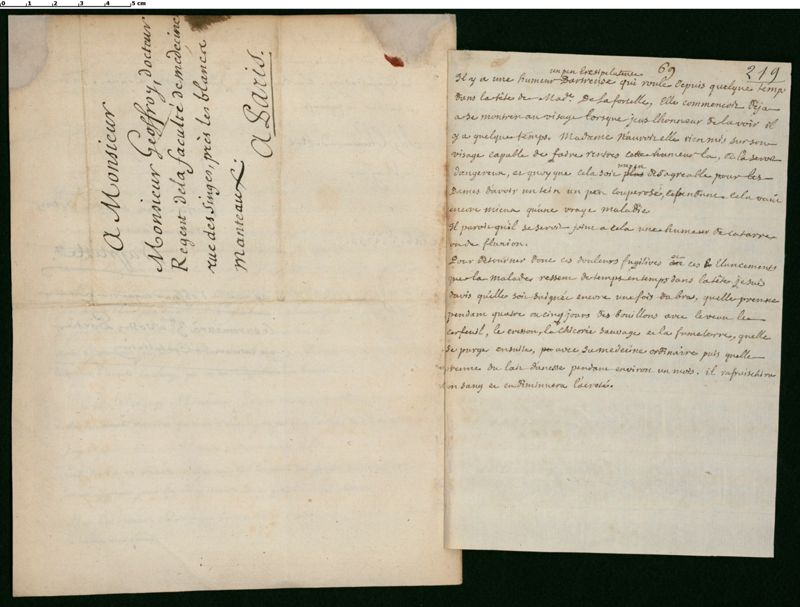 0 1 2 3 4 5 cm
A Monsieur
Monsieur Geoffroy, docteur
Regent de la faculté de medecine
rue des Singes, près les blancs
Manteaux.
A Paris.
69
219
un peu Eresipelateuse
Il y a une humeur Dartreuse qui roule depuis quelque temp
dans la tête de Made. De la fortelle, Elle commencoit deja
a se montrer au visage lorsque jeus lhonneur de la voir il
y a quelque temps. Madame N'auroit elle rien mis sur son
visage capable de faire rentrer cette humeur la, cela seroit
dangereux, et quoyque cela soit un peu desagreable pour les
Dames davoir un tein un peu couperosé, cependant cela vaut
encore mieux qu'une vraye maladie
Il paroit qu'il se seroit joint a cela une humeur de catarre
ou de fluxion.
Pour detourner donc ces douleurs fugitives et ces Elancements
que la malades ressent de temps en temps dans la tête, je suis
davis qu'elle soit saignée encore une fois du bras, quelle prenne
pendant quatre ou cinq jours des bouillons avec le veau le
cerfeuil, le cresson, la chicorée sauvage et la fumeterre, quelle
se purge ensuite, avec sa medecine ordinaire puis quelle
prenne du lait danesse pendant environ un mois. il rafraichira
son sang et en diminuera lacreté.